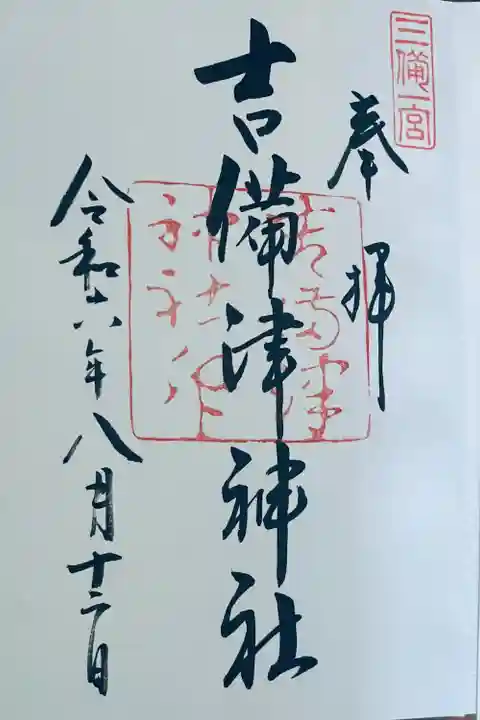 三備一宮
奉拝
吉備津神社
吉備津
神社印
令和六年八月十二日